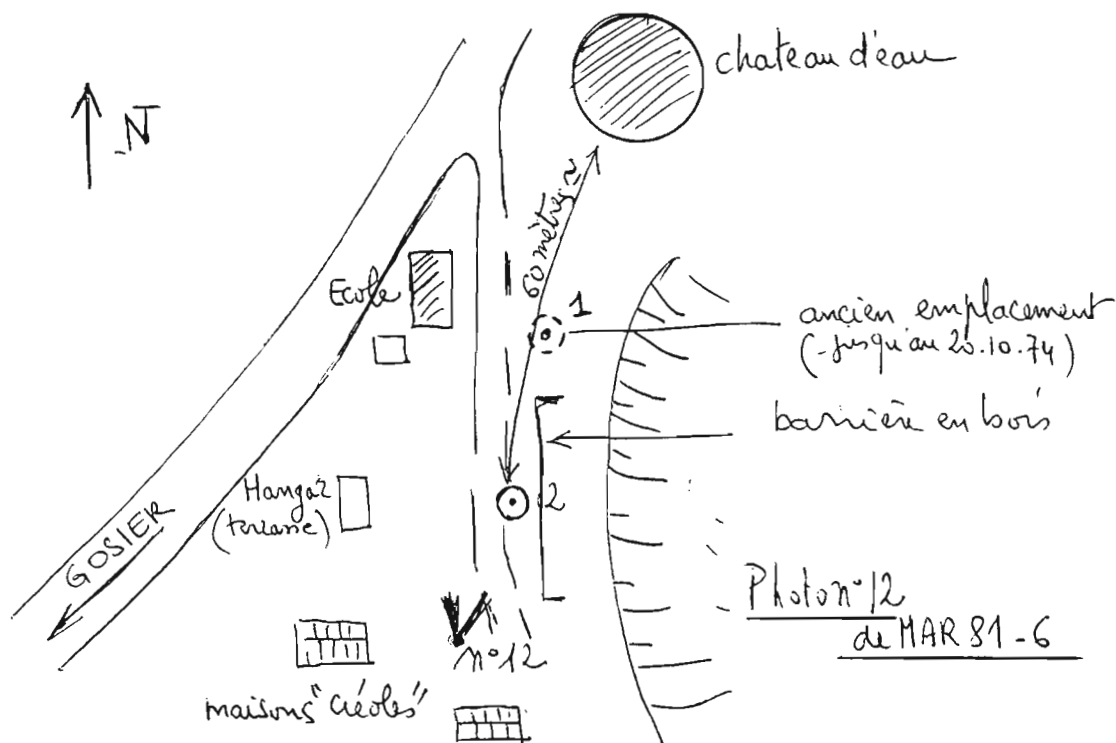 chateau d'eau
N
60 mètres ≃
Ecole
1
ancien emplacement
(-jusqu'au 20.10.74)
barrière en bois
Hangar
(terrasse)
2
GOSIER
Photo n° 12
de MAR 81-6
n° 12
maisons "créoles"